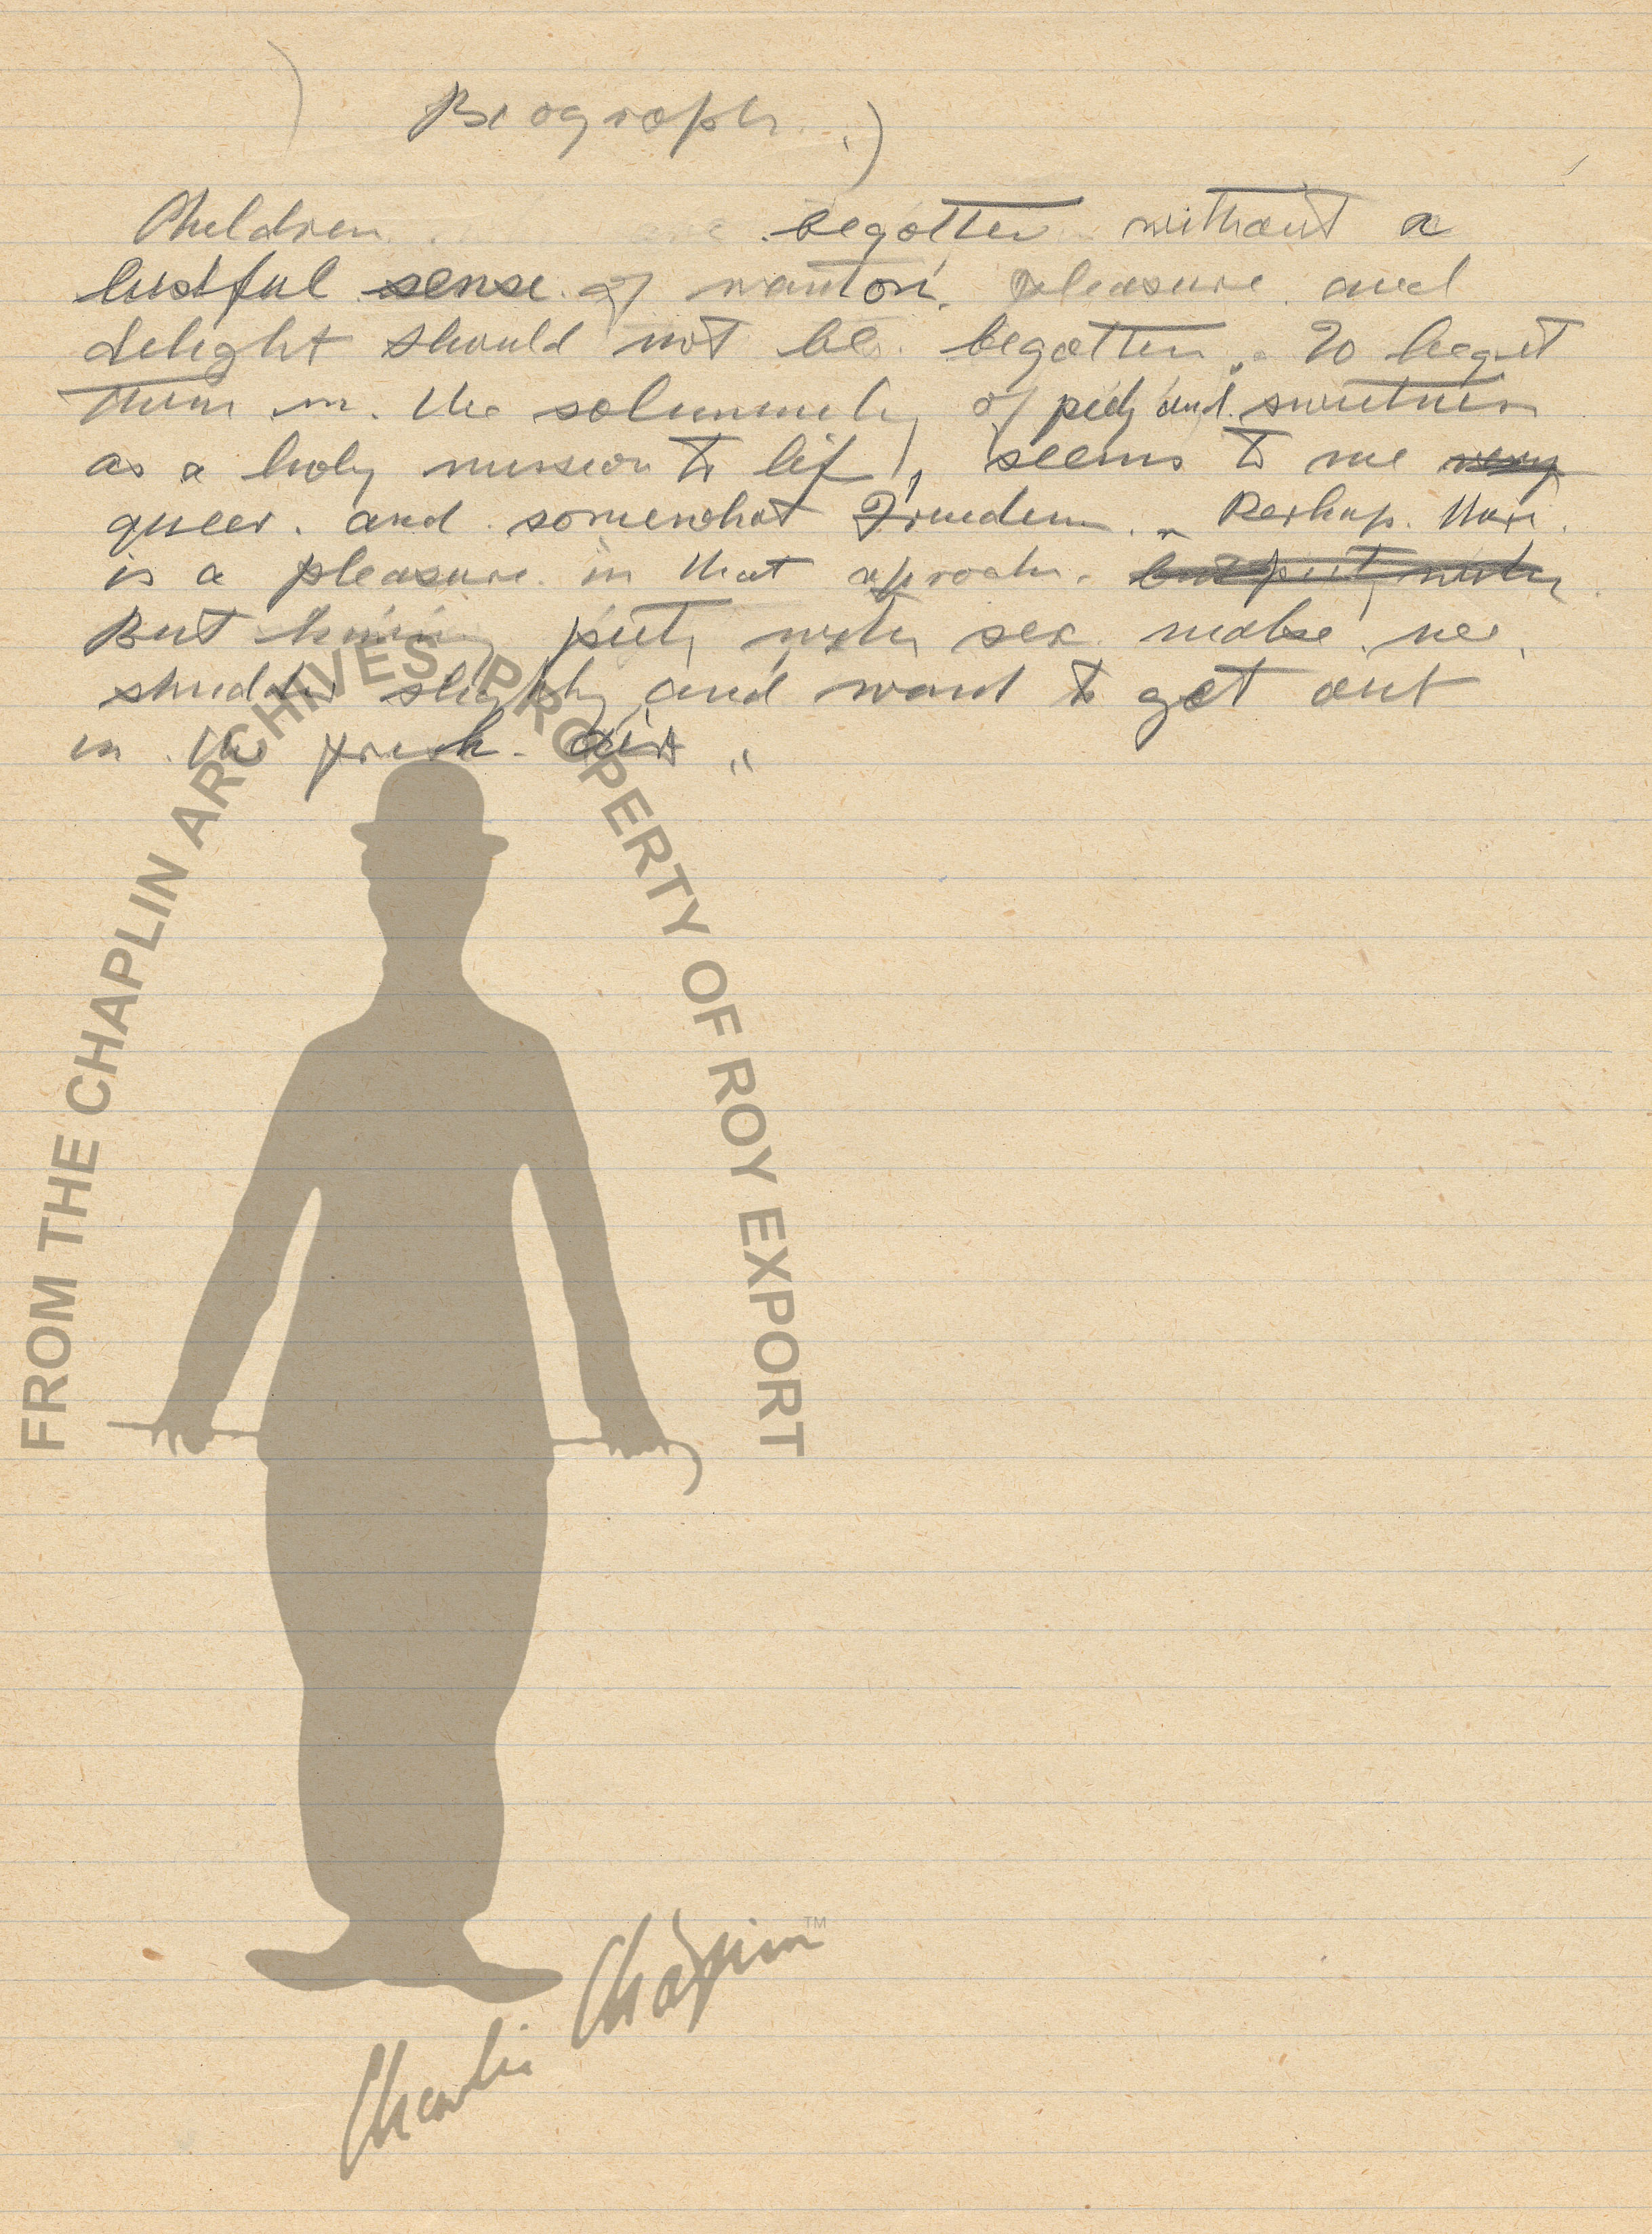 Biograph.)
Children begotten without a
lustful sense of wanton pleasure and
delight should not be begotten. To beget
them in the solemnity of piety and sweetness
as a holy mission to life, seems to me very
queer. and somewhat . Perhap. there
is a pleasure in that aproach. but piety with
But piety with sex make me
shudder slightly and want to get out
in the fresh air"
FROM THE CHAPLIN ARCHIVES PROPERTY OF ROY EXPORT
Charlie Chaplin™